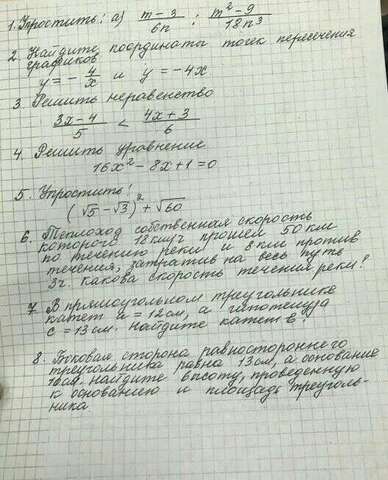 1. Упростить: а) (m - 3)/(6n) : (m² - 9)/(18n³)
2. Найдите координаты точек пересечения
графиков
y = - 4/x и y = -4x
3. Решить неравенство
(3x - 4)/5 < (4x + 3)/6
4. Решить уравнение
16x² - 8x + 1 = 0
5. Упростить!
(√5 - √3)² + √60
6. Теплоход собственная скорость
которого 18 км/ч прошел 50 км
по течению реки и 8 км против
течения, затратив на весь путь
3ч. Какова скорость течения реки?
7. В прямоугольном треугольнике
катет a = 12см, а гипотенуза
c = 13см. Найдите катет в?
8. Боковая сторона равностороннего
треугольника равна 13см, а основание
10см. Найдите высоту, проведенную
к основанию и площадь треуголь-
ника